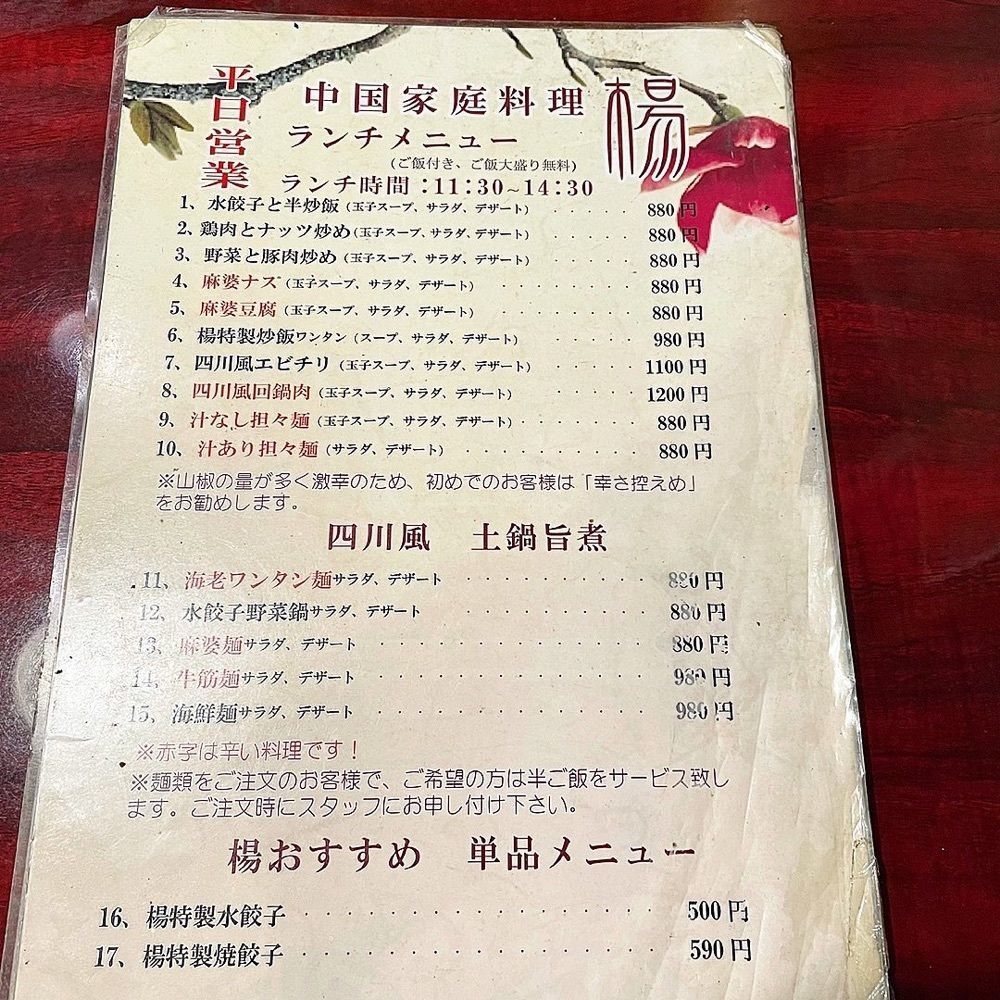 平日営業
中国家庭料理 楊
ランチメニュー
(ご飯付き、ご飯大盛り無料)
ランチ時間：11:30～14:30
1、水餃子と半炒飯（玉子スープ、サラダ、デザート）・・・・・・880円
2、鶏肉とナッツ炒め（玉子スープ、サラダ、デザート）・・・・・・880円
3、野菜と豚肉炒め（玉子スープ、サラダ、デザート）・・・・・・880円
4、麻婆ナス（玉子スープ、サラダ、デザート）・・・・・・・・・880円
5、麻婆豆腐（玉子スープ、サラダ、デザート）・・・・・・・・・880円
6、楊特製炒飯ワンタン（スープ、サラダ、デザート）・・・・・・・980円
7、四川風エビチリ（玉子スープ、サラダ、デザート）・・・・・・1100円
8、四川風回鍋肉（玉子スープ、サラダ、デザート）・・・・・・・1200円
9、汁なし担々麺（玉子スープ、サラダ、デザート）・・・・・・・880円
10、汁あり担々麺（サラダ、デザート）・・・・・・・・・・・880円
※山椒の量が多く激辛のため、初めてのお客様は「辛さ控えめ」
をお勧めします。
四川風 土鍋旨煮
11、海老ワンタン麺サラダ、デザート・・・・・・・・・・880円
12、水餃子野菜鍋サラダ、デザート・・・・・・・・・・・880円
13、麻婆麺サラダ、デザート・・・・・・・・・・・・・・880円
14、牛筋麺サラダ、デザート・・・・・・・・・・・・・・980円
15、海鮮麺サラダ、デザート・・・・・・・・・・・・・・980円
※赤字は辛い料理です！
※麺類をご注文のお客様で、ご希望の方は半ご飯をサービス致し
ます。ご注文時にスタッフにお申し付け下さい。
楊おすすめ 単品メニュー
16、楊特製水餃子・・・・・・・・・・・・・・・・・500円
17、楊特製焼餃子・・・・・・・・・・・・・・・・・590円